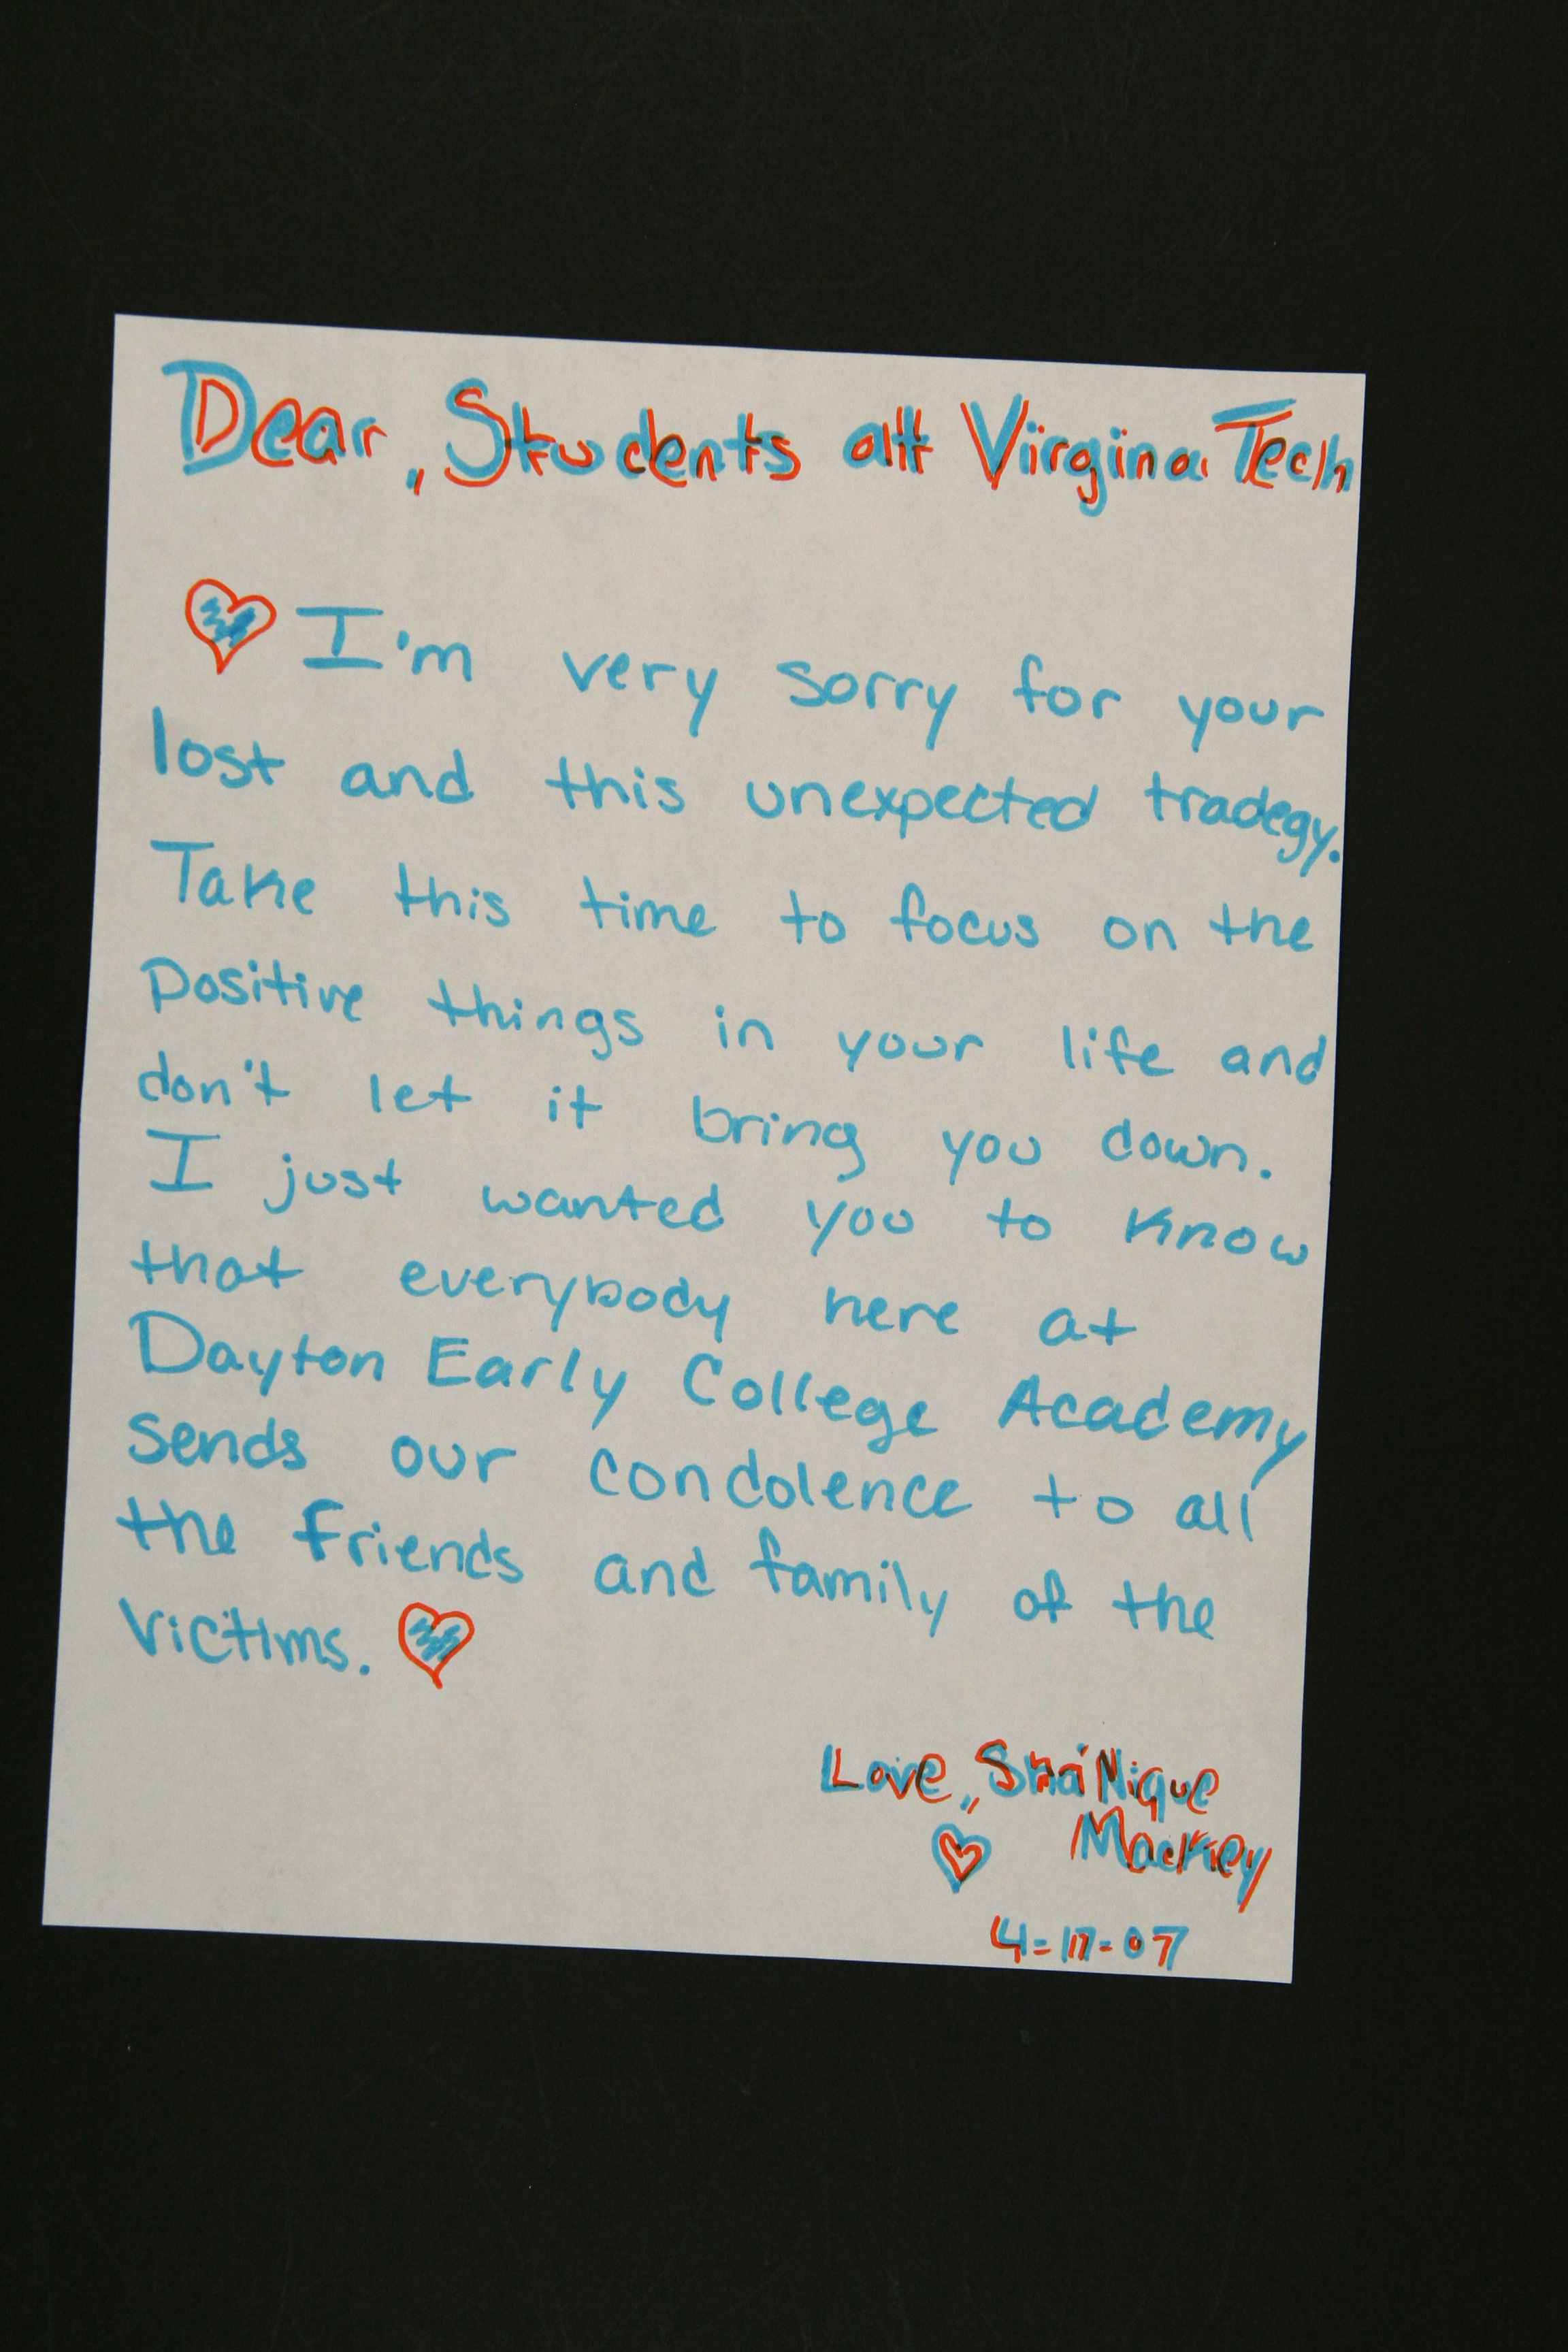 Dear, Students at Virgina Tech
I'm very sorry for your
lost and this unexpected tradegy.
Take this time to focus on the
positive things in your life and
don't let it bring you down.
I just wanted you to know
that everybody here at
Dayton Early College Academy
sends our condolence to all
the friends and family of the
victims.
Love, Sha'Nique
Mackey
4-17-07